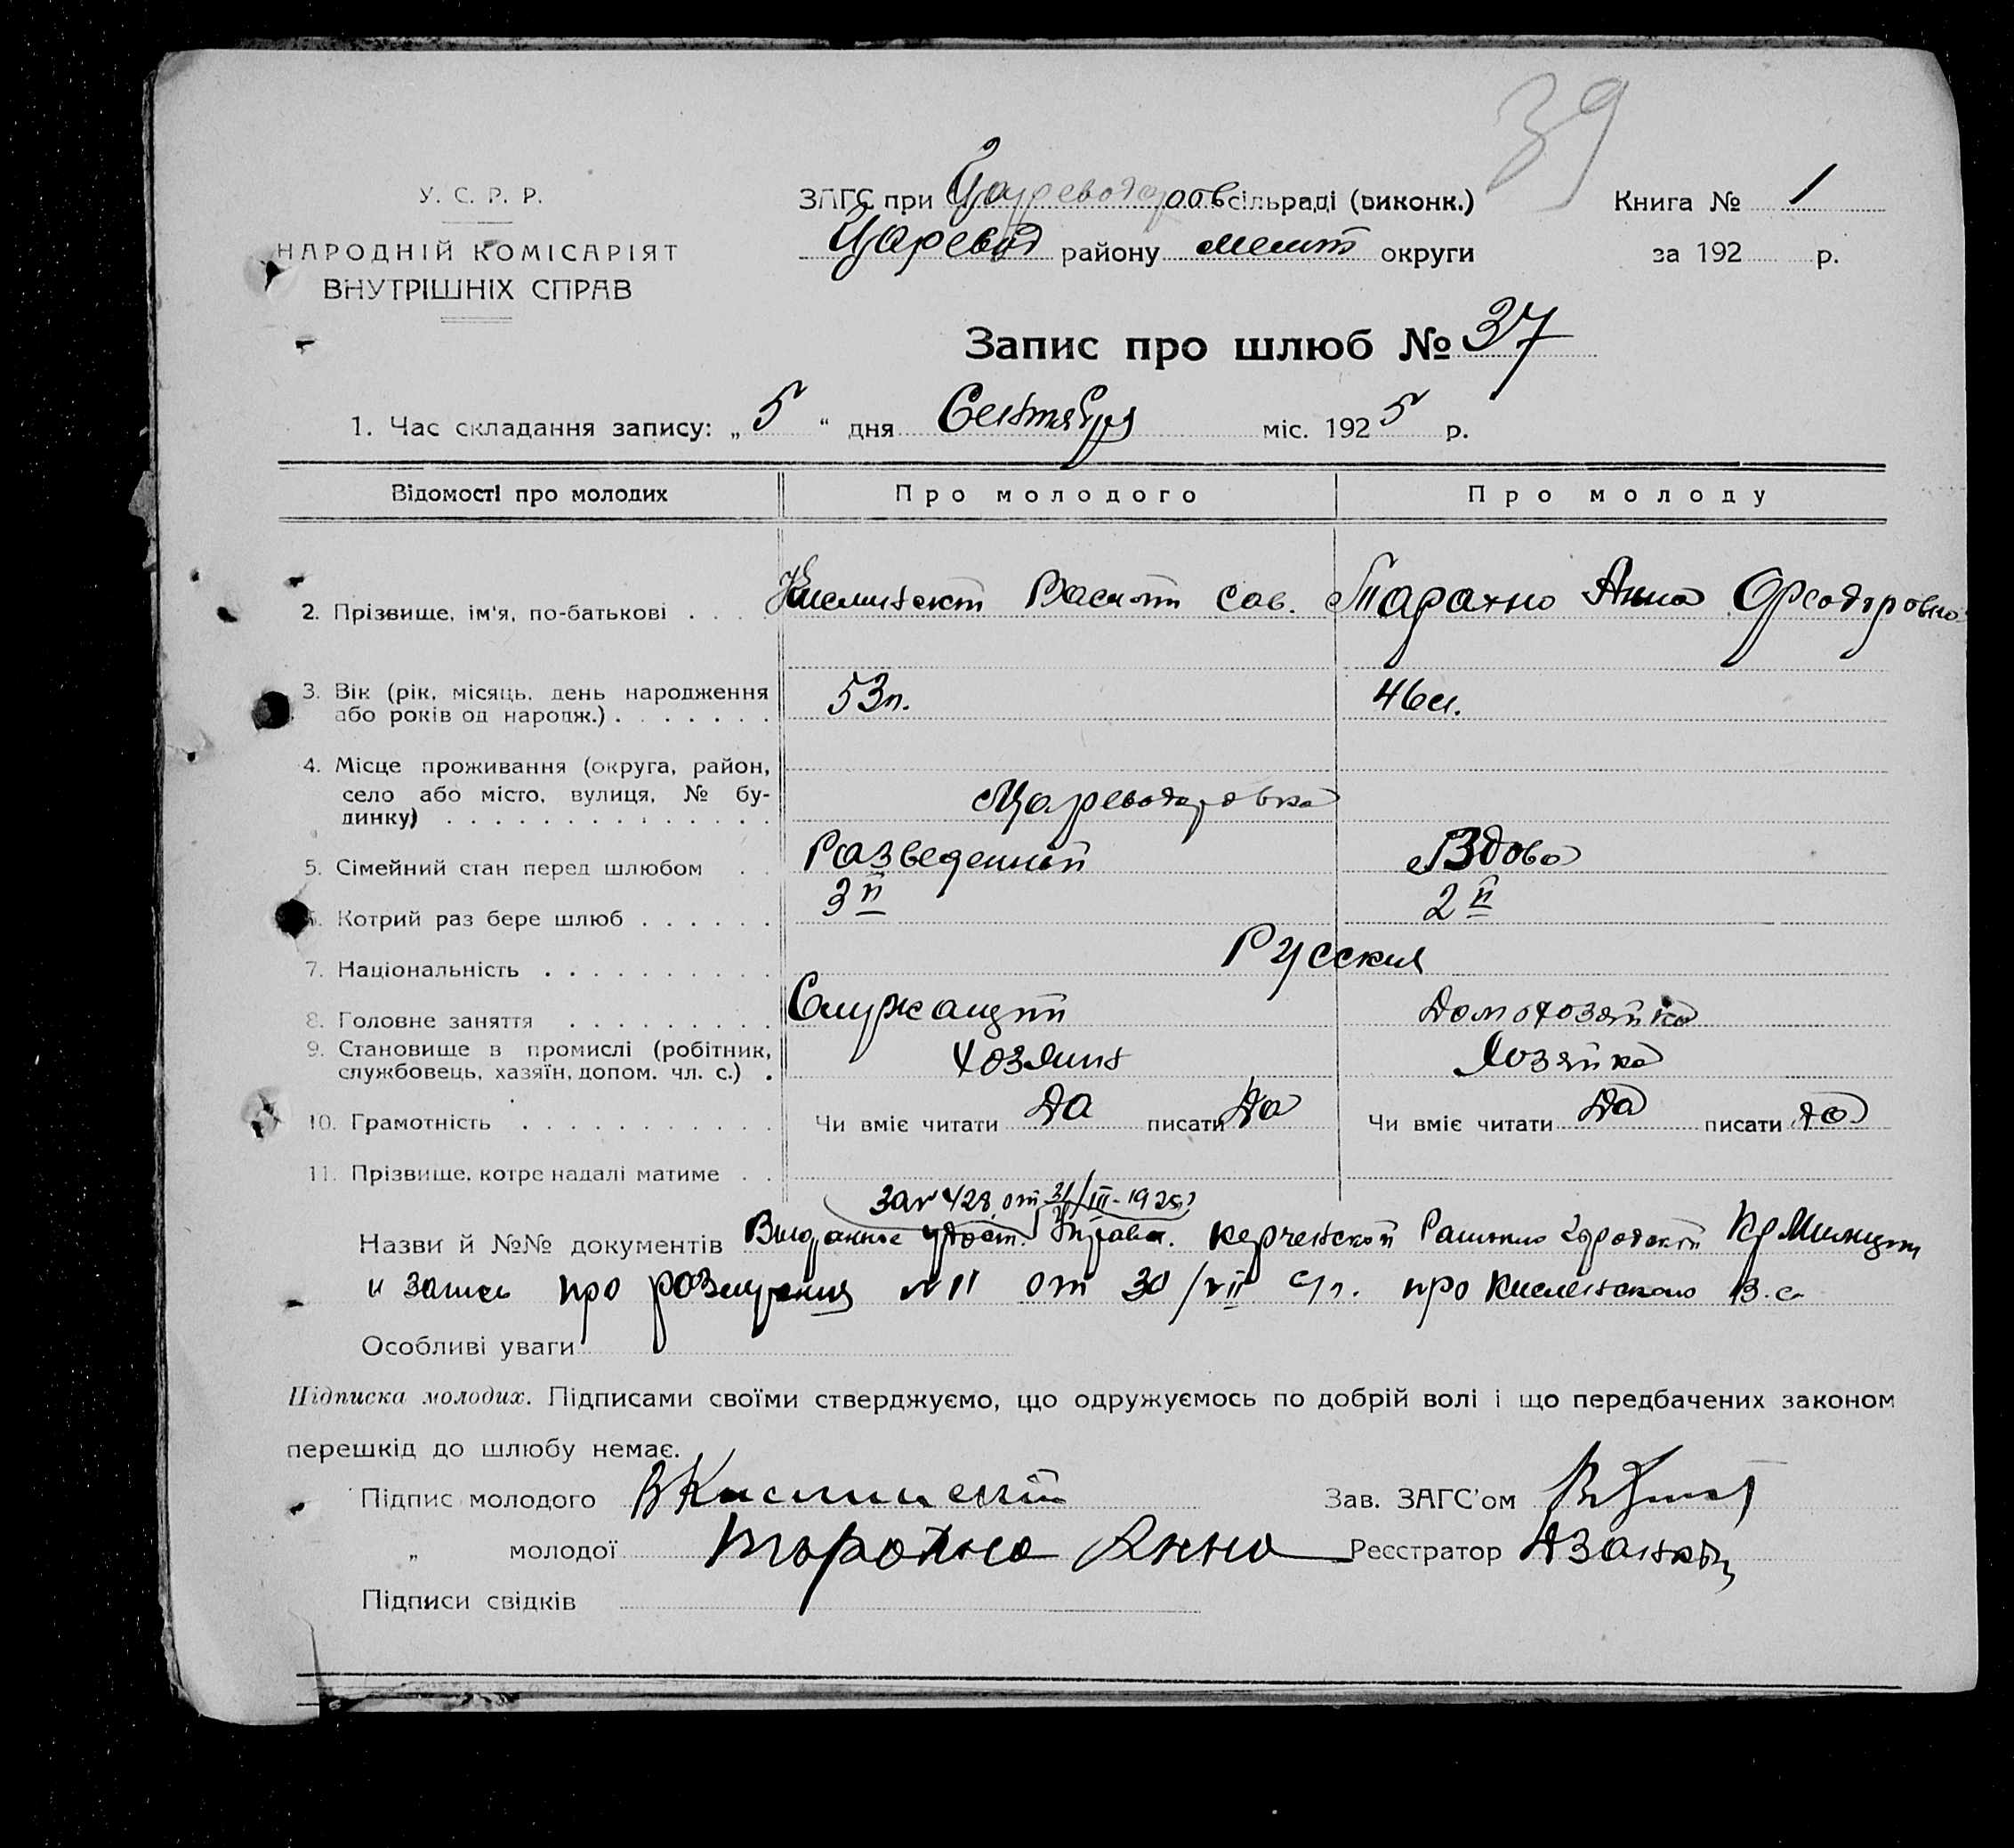 39
У. С. Р. Р.
НАРОДНІЙ КОМІСАРІЯТ
ВНУТРІШНІХ СПРАВ
ЗАГС при Царевода сільраді (виконк.)
Царевод району Мелит округи
Книга № 1
за 192 р.
Запис про шлюб № 37
1. Час складання запису: „ 5 “ дня Сентября міс. 1925 р.
Відомості про молодих Про молодого Про молоду
2. Прізвище, ім'я, по-батькові . . . . Василий Сав. Тарахно Анна Феодоровна
3. Вік (рік, місяць, день народження 53 л. 46 л.
або років од народж.) . . . . . . .
4. Місце проживання (округа, район,
село або місто, вулиця, № бу- Цареводаровка
динку) . . . . . . . . . . . . . .
5. Сімейний стан перед шлюбом . . Разведенный Вдова
6. Котрий раз бере шлюб . . . . . . 3й 2й
7. Національність . . . . . . . . . . Русския
8. Головне заняття . . . . . . . . . Служащий Домохозяйка
9. Становище в промислі (робітник,
службовець, хазяїн, допом. чл. с.) . Хозяин Хозяйка
10. Грамотність . . . . . . . . . . . Чи вміє читати да писати да Чи вміє читати да писати да
11. Прізвище, котре надалі матиме . .
за № 428 от 31/III - 1925
Назви й №№ документів Выданное удост. Управ. Керченской городской
и запись про розлучения № 11 от 30/VII с/г. про Кислинского В. С.
Особливі уваги
Підписка молодих. Підписами своїми стверджуємо, що одружуємось по добрій волі і що передбачених законом
перешкід до шлюбу немає.
Підпис молодого В Кислинский Зав. ЗАГС'ом
„ молодої Тарахно Анна Реєстратор
Підписи свідків